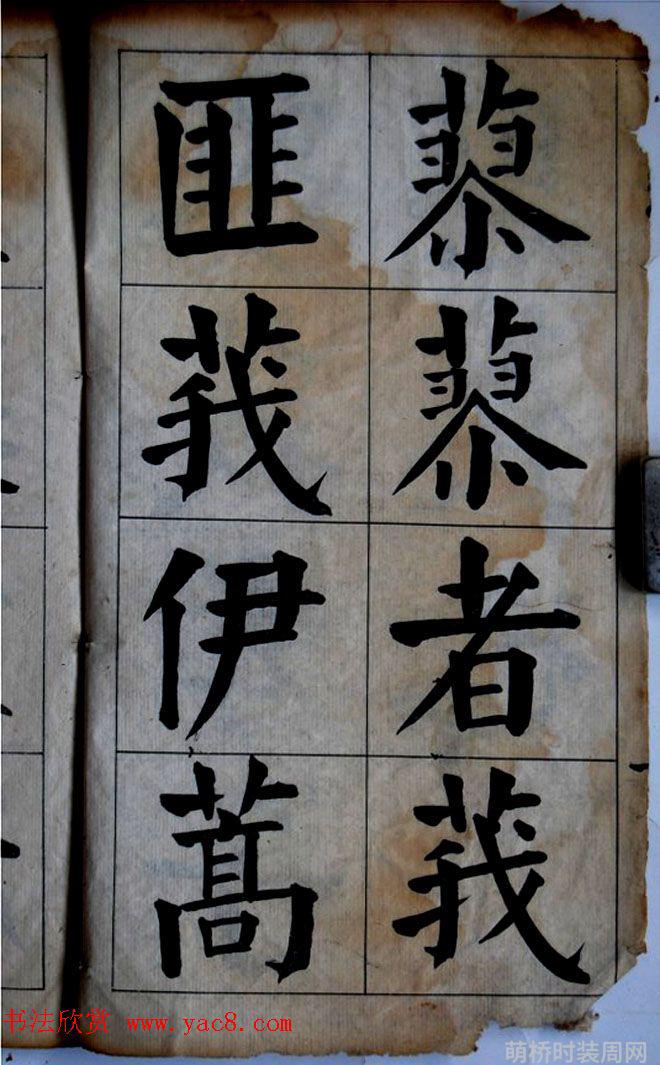 蓼蓼者莪
匪莪伊蒿
书法欣赏 www.yac8.com
萌桥时装周网